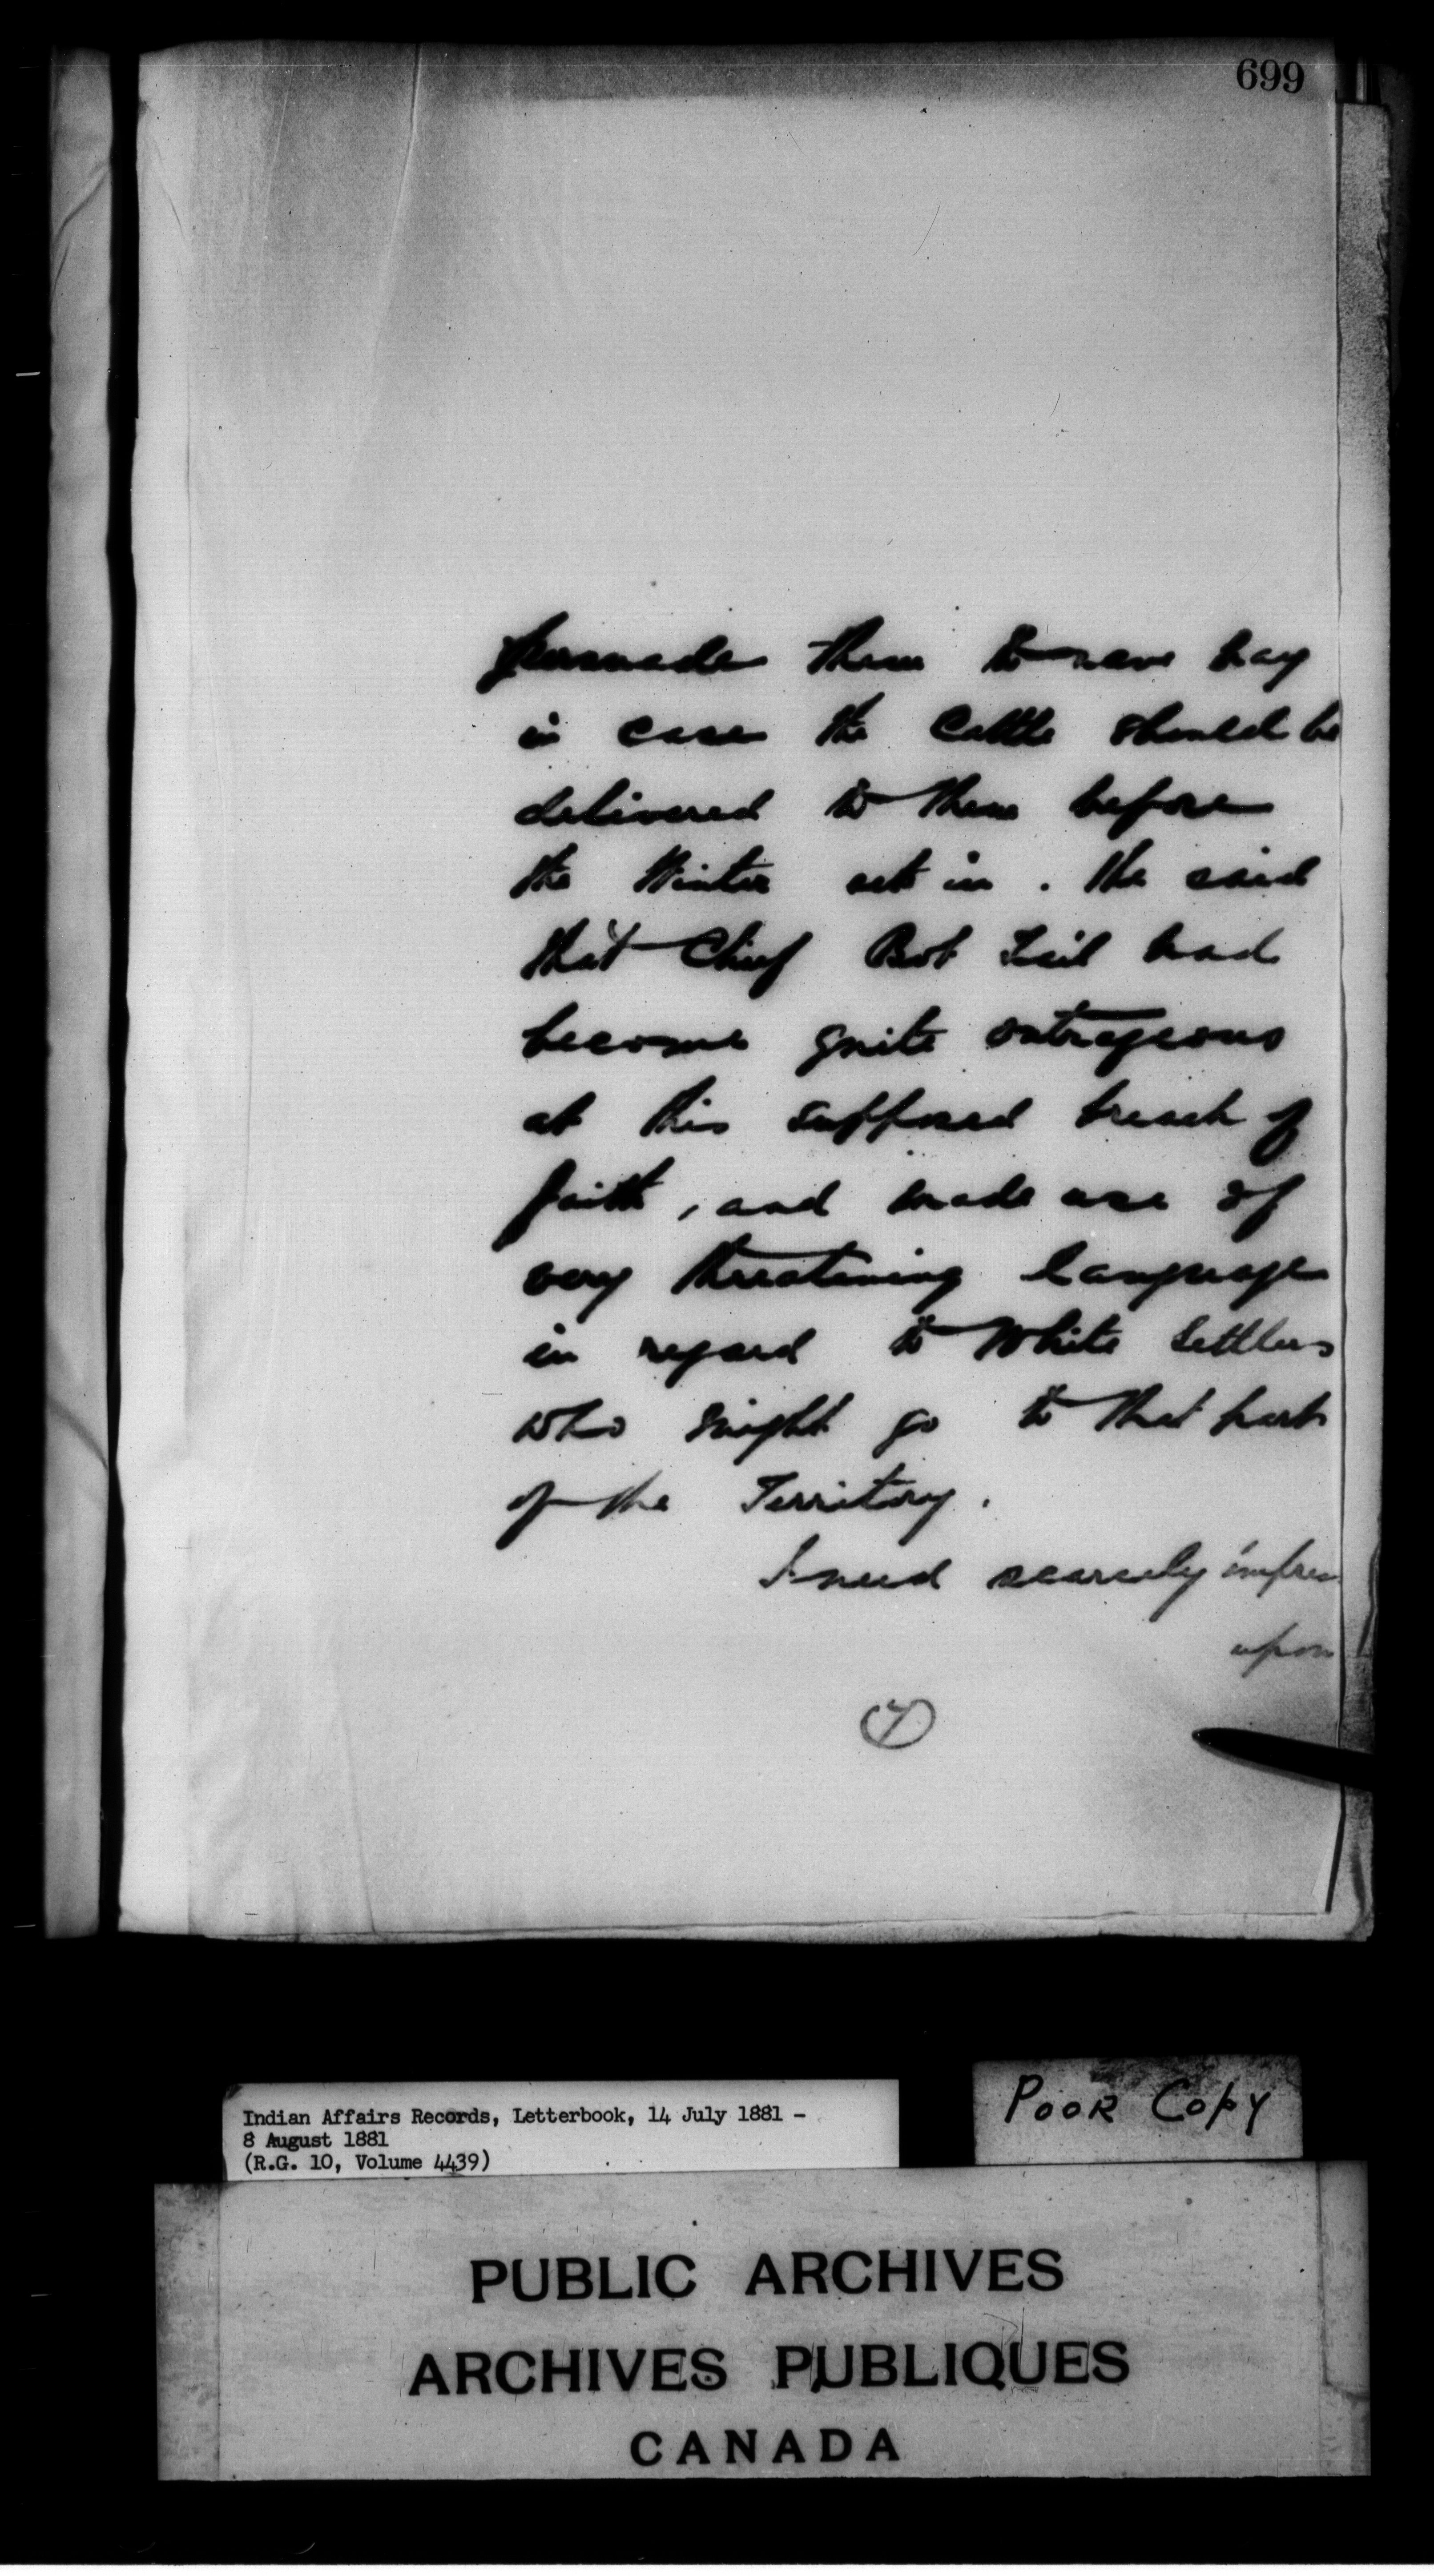 699
persuade them to save hay
in case the Cattle should be
delivered to them before
the Winter set in. He said
that Chief Bob Tail had
become quite outrageous
at this supposed breach of
faith, and made use of
very threatening language
in regard to White Settlers
who might go to that part
of the Territory.
I need scarcely impress
upon
7
Indian Affairs Records, Letterbook, 14 July 1881 -
8 August 1881
(R.G. 10, Volume 4439)
POOR COPY
PUBLIC ARCHIVES
ARCHIVES PUBLIQUES
CANADA